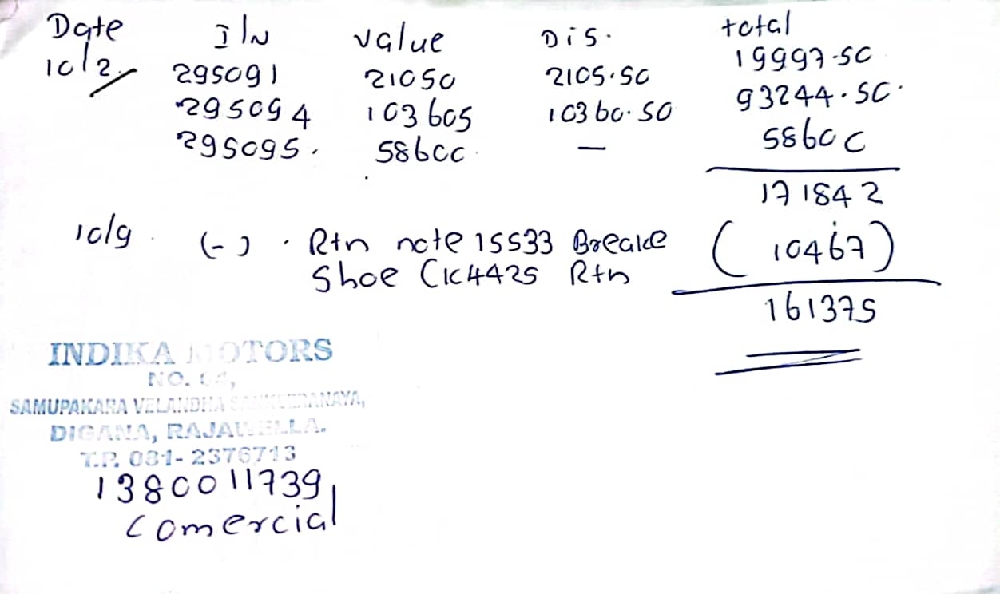 Date I/N value Dis. total
10/2 295091 21050 2105.50 19997.50
295094 103605 10360.50 93244.50
295095. 58600 — 58600
171842
10/9 (-) . Rtn note 15533 Breake (10467)
Shoe CK4425 Rtn
161375
INDIKA MOTORS
NO.
SAMUPAKARA VELANDHA
DIGANA, RAJAWELLA.
T.P. 081-2376713
1380011739
Comercial